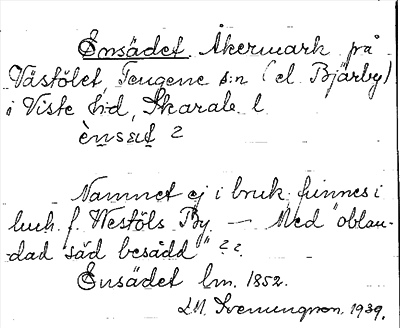 Ensädet Åkermark på
Västölet, Tengene s:n (el Bjärby)
i Viste hd, Skarab. l.
ènsæt 2
Namnet ej i bruk, finnes i
luch. f. Westöls By — Med "oblan-
dad säd besådd" ??.
Ensädet lm. 1852.
1939.